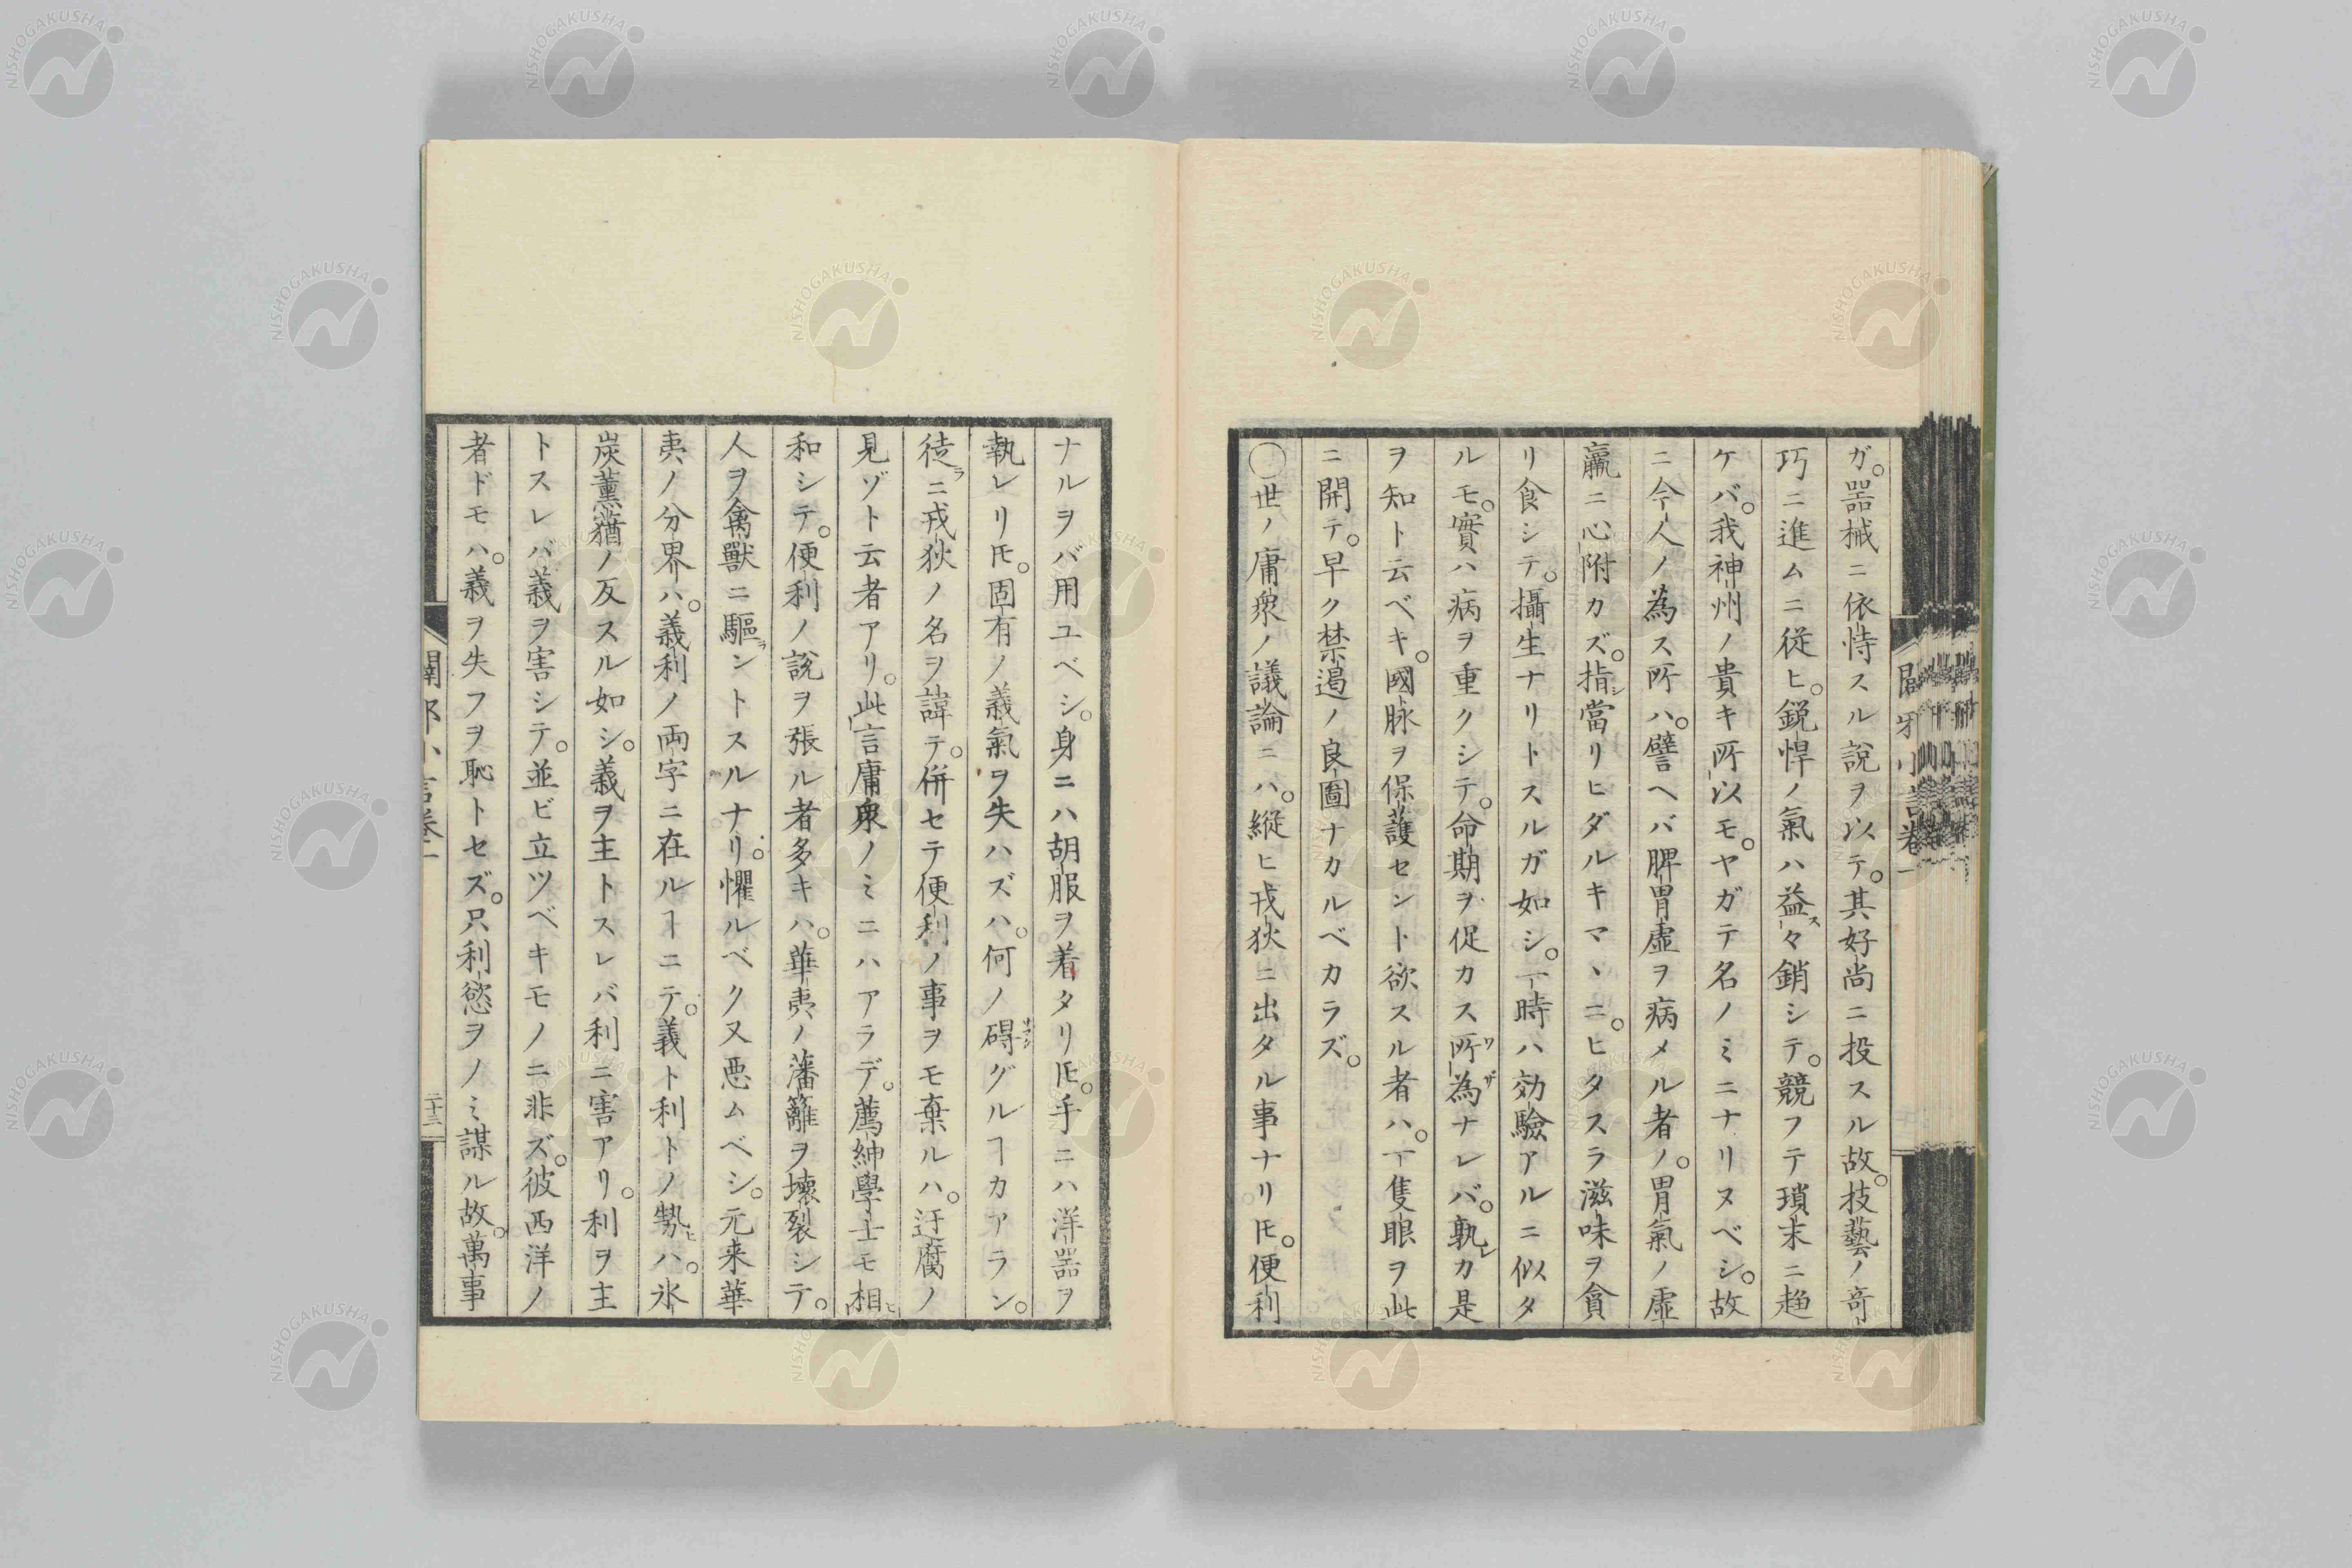 ガ。器械ニ依恃スル説ヲ以テ。其好尚ニ投スル故。技藝ノ奇
巧ニ進ムニ従ヒ。鋭悍ノ氣ハ益々ス銷シテ。競フテ瑣末ニ趋
ケバ。我神州ノ貴キ所以モ。ヤガテ名ノミニナリヌベシ。故
ニ今人ノ為ス所ハ。譬ヘバ脾胃虚ヲ病メル者ノ。胃氣ノ虚
羸ニ心附カズ。指シ當リヒダルキマヽニ。ヒタスラ滋味ヲ貪
リ食シテ。攝生ナリトスルガ如シ。一時ハ効驗アルニ似タ
ルモ。實ハ病ヲ重クシテ。命期ヲ促カス所為ワザナレバ。孰レカ是
ヲ知ト云ベキ。國脉ヲ保護セント欲スル者ハ。一隻眼ヲ此
ニ開テ。早ク禁遏ノ良圖ナカルベカラズ。
○世ノ庸衆ノ議論ニハ。縦ヒ戎狄ニ出タル事ナリ𪜈。便利
ナルヲバ用ユベシ。身ニハ胡服ヲ着タリ𪜈。手ニハ洋器ヲ
執レリ𪜈。固有ノ義氣ヲ失ハズハ。何ノ碍グルヿカアラン。
徒ラニ戎狄ノ名ヲ諱テ。併セテ便利ノ事ヲモ棄ルハ。迂腐ノ
見ゾト云者アリ。此言庸衆ノミニハアラデ。薦紳學士モ相ヒ
和シテ。便利ノ説ヲ張ル者多キハ。華夷ノ藩籬ヲ壊裂シテ。
人ヲ禽獸ニ驅ラントスルナリ。懼ルベク又悪ムベシ。元来華
夷ノ分界ハ。義利ノ両字ニ在ルヿニテ。義ト利トノ勢ヒハ。氷
炭薫蕕ノ反スル如シ。義ヲ主トスレバ利ニ害アリ。利ヲ主
トスレバ義ヲ害シテ。並ビ立ツベキモノニ非ズ。彼西洋ノ
者ドモハ。義ヲ失フヲ恥トセズ。只利慾ヲノミ謀ル故。萬事
闢邪小言巻一
二十三